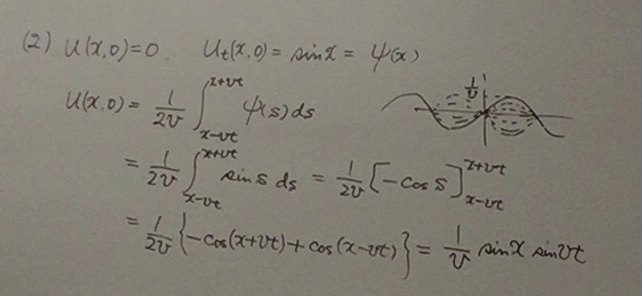 (2) u(x,0)=0. u_t(x,0)= sin x = ψ(x)
u(x,0) = \frac{1}{2v} \int_{x-vt}^{x+vt} ψ(s) ds
\frac{1}{v}
= \frac{1}{2v} \int_{x-vt}^{x+vt} sin s ds = \frac{1}{2v} [-cos s]_{x-vt}^{x+vt}
= \frac{1}{2v} {-cos(x+vt)+cos(x-vt)} = \frac{1}{v} sin x sin vt